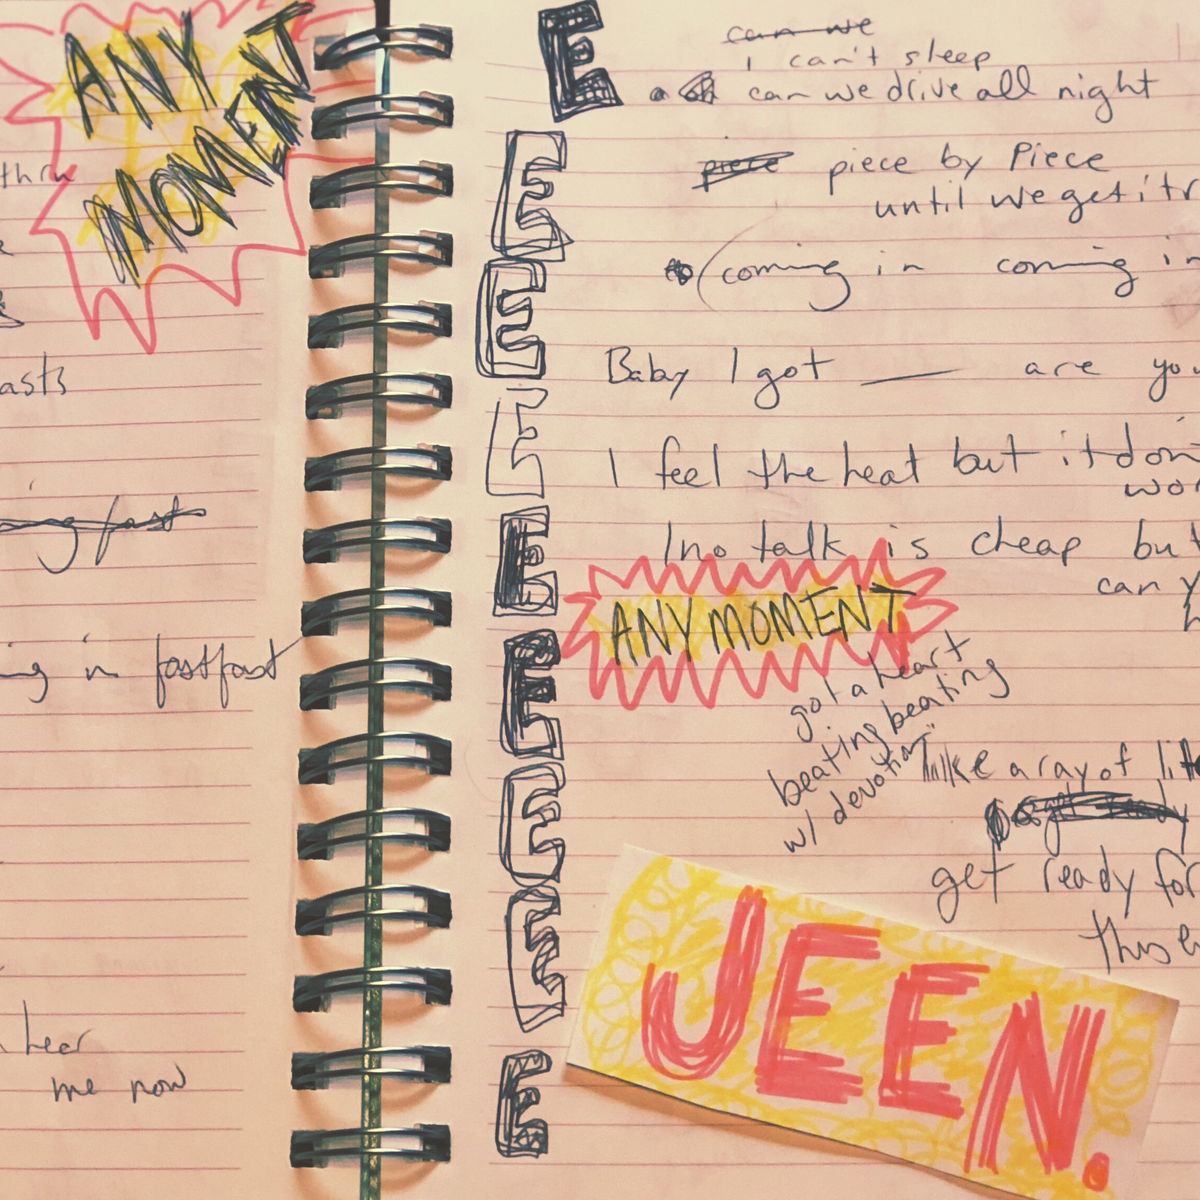 ANY
MOMENT
thru
asts
ing fast
ing in fastfast
hear
me now
E
E
E
E
E
E
E
E
E
can we
i can't sleep
can we drive all night
piece piece by Piece
until we get it r
(coming in coming in
Baby I got — are you
I feel the heat but it don'
wor
Ino talk is cheap but
can y
h
ANY MOMENT
got a heart
beating beating
w/ devotion
like a ray of lite
get ready
get ready for
this
JEEN.